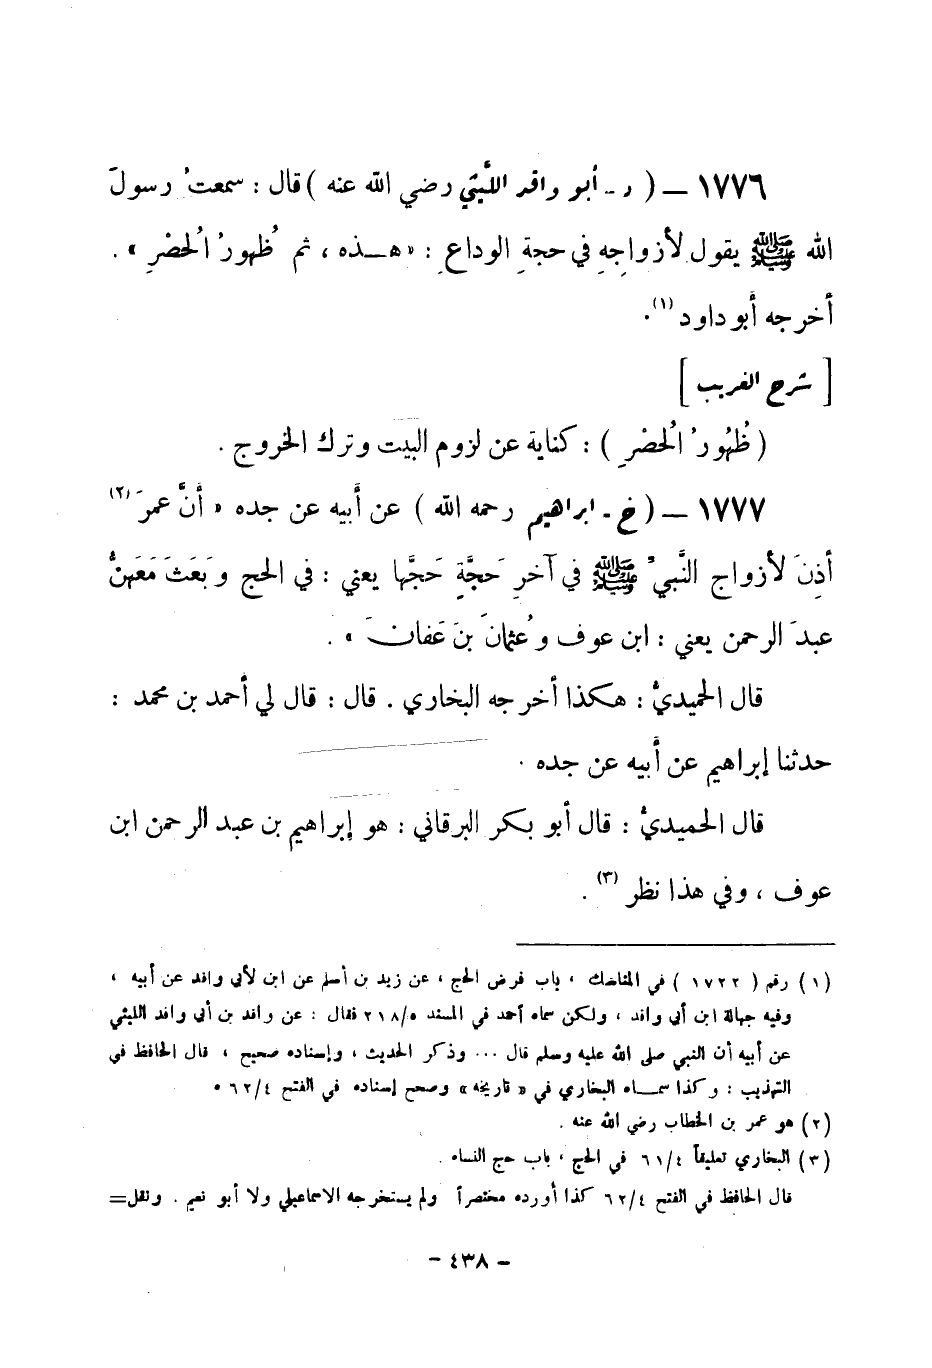 ١٧٧٦ — ( د - أبو واقد الليثي رضي الله عنه ) قال : سمعتُ رسولَ
الله ﷺ يقول لأزواجِهِ في حجةِ الوداعِ : « هــذه ، ثم ظُهورُ الحُصْرِ » .
أخرجه أبو داود (١).
[ شرح الغريب ]
( ظُهُورُ الحُصْرِ ) : كناية عن لزوم البيت وترك الخروج .
١٧٧٧ — ( خ - ابراهيم رحمه الله ) عن أبيه عن جده « أنَّ عمرَ (٢)
أذِنَ لأزواج النَّبيِّ ﷺ في آخرِ حَجَّةٍ حَجَّها يعني : في الحج وبَعَثَ مَعَهنَّ
عبدَ الرحمن يعني : ابن عوف وعُثمانَ بنَ عَفانَ » .
قال الحميديُّ : هكذا أخرجه البخاري . قال : قال لي أحمد بن محمد :
حدثنا إبراهيم عن أبيه عن جده .
قال الحميديُّ : قال أبو بكر البرقاني : هو إبراهيم بن عبد الرحمن ابن
عوف ، وفي هذا نظر (٣) .
(١) رقم ( ١٧٢٢ ) في المناسك ، باب فرض الحج ، عن زيد بن أسلم عن ابن لأبي واقد عن أبيه ،
وفيه جهالة ابن أبي واقد ، ولكن سماه أحمد في المسند ٢١٨/٥ فقال : عن واقد بن أبي واقد الليثي
عن أبيه أن النبي صلى الله عليه وسلم قال ... وذكر الحديث ، وإسناده صحيح ، قال الحافظ في
التهذيب : وكذا سمــاه البخاري في « تاريخه » وصحح إسناده في الفتح ٦٢/٤ .
(٢) هو عمر بن الخطاب رضي الله عنه .
(٣) البخاري تعليقاً ٦١/٤ في الحج ، باب حج النساء .
قال الحافظ في الفتح ٦٢/٤ كذا أورده مختصراً ولم يستخرجه الاسماعيلي ولا أبو نعيم . ونقل=
- ٤٣٨ -